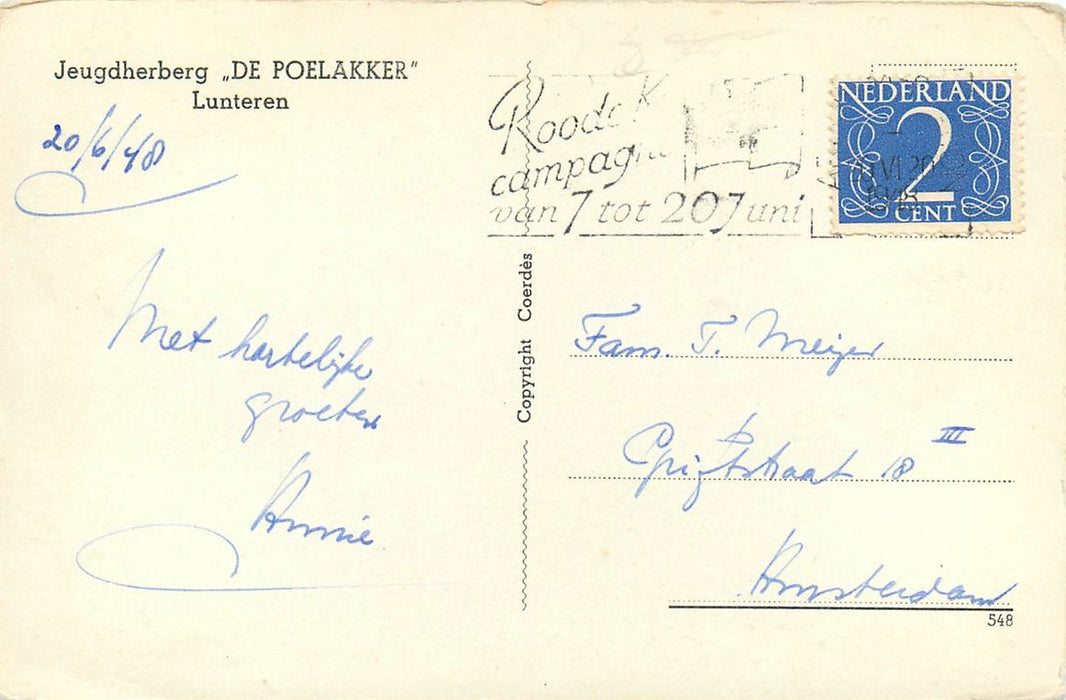 Jeugdherberg „DE POELAKKER”
Lunteren
20/6/48
Met hartelijke
groeten
Annie
Copyright Coerdès
Roode K
campagn
van 7 tot 20 Juni
VI 20
1948
NEDERLAND
2
CENT
Fam. T. Meijer
straat 18 III
Amsterdam
548